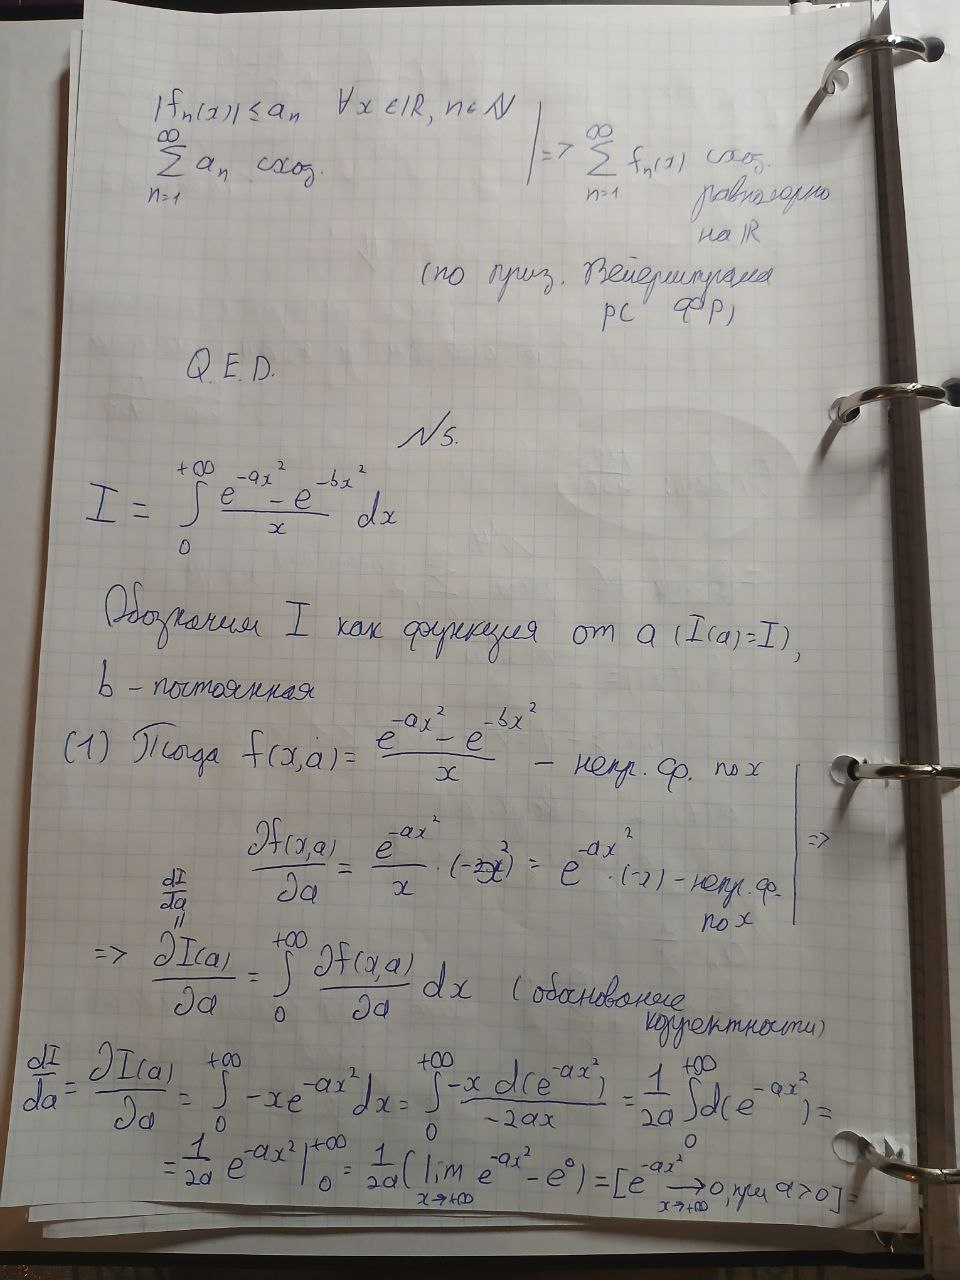 |fn(x)| ≤ an ∀x ∈ ℝ, n ∈ ℕ
∞
∑ an сход.
n=1
=> ∞
∑ fn(x) сход.
n=1
равномерно
на ℝ
(по приз. Вейерштрасса
РС ФР)
Q.E.D.
№5.
I = ∫₀^{+∞} (e^{-ax²} - e^{-bx²})/x dx
Обозначим I как функция от a (I(a)=I),
b – постоянная
(1) Тогда f(x,a) = (e^{-ax²} - e^{-bx²})/x – непр. ф. по x
∂f(x,a)/∂a = e^{-ax²}/x · (-x²) = e^{-ax²} · (-x) – непр. ф. =>
по x
dI/da
=
=> ∂I(a)/∂a = ∫₀^{+∞} ∂f(x,a)/∂a dx (обоснование
корректности)
dI/da = ∂I(a)/∂a = ∫₀^{+∞} -xe^{-ax²}dx = ∫₀^{+∞} -x d(e^{-ax²})/(-2ax) = 1/2a ∫₀^{+∞} d(e^{-ax²}) =
= 1/2a e^{-ax²} |₀^{+∞} = 1/2a (lim_{x→+∞} e^{-ax²} - e⁰) = [e^{-ax²} →_{x→+∞} 0, при a>0] =